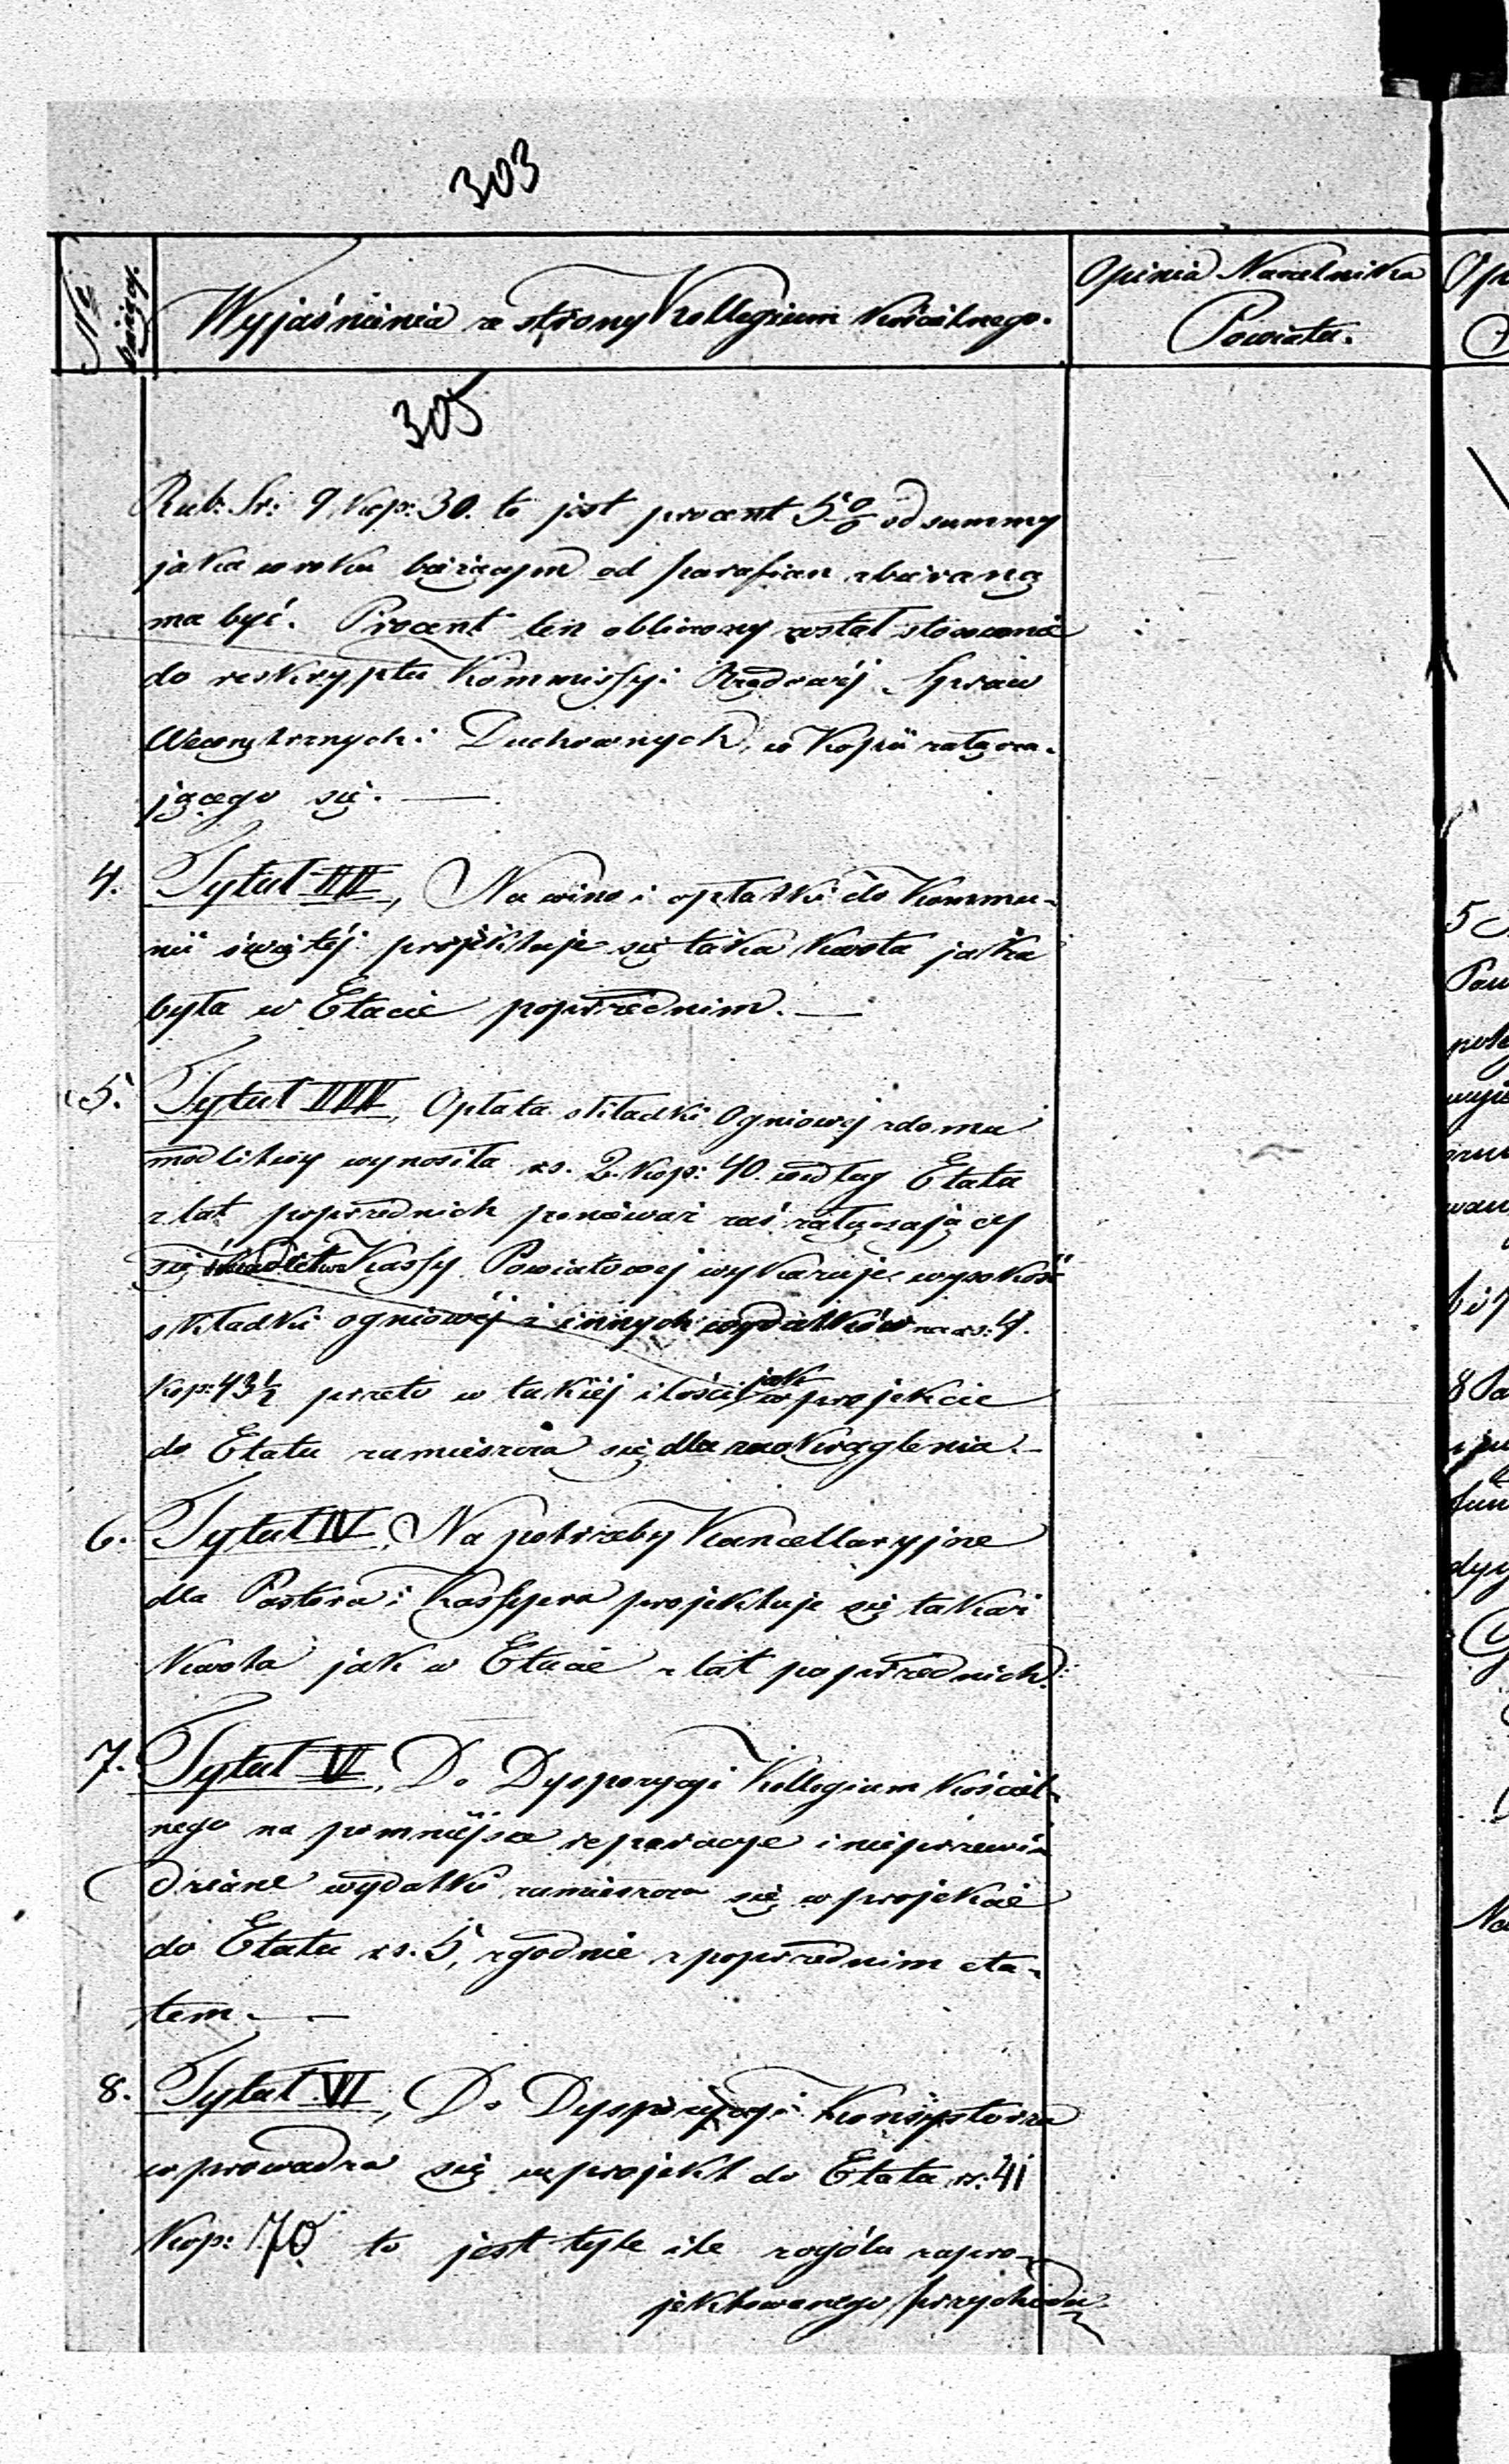 303
№ bieżący.
Wyjaśnienia ze strony Kollegium Kościelnego.
Opinia Naczelnika
Powiatu.
305
Rub: Sr: 9 Kop: 30. to jest procent 5% od summy
jaka w roku bieżącym od parafian zbieraną
ma być. Procent ten obliczony został stosownie
do reskryptu Kommissyi Rządowéj Spraw
Wewnętrznych i Duchownych, w Kopii załącza-
jącego się. —
4. Tytuł III, Na wino i opłatki do Kommu-
nii świętéj projektuje się taka kwota jaka
była w Etacie poprzednim. —
5. Tytuł IIII, Opłata składki Ogniowej z domu
modlitwy wynosiła rs. 2. Kop: 40. według Etatu
z lat poprzednich ponieważ zaś załączający
się świadectwo Kassy Powiatowej wykazuje wysokość
składki ogniowéj i innych wydatków na rs: 4.
Kop: 43½ przeto w takiéj ilości jak w projekcie
do Etatu zamieszcza się dla zaokrąglenia. —
6. Tytuł IV, Na potrzeby Kancellaryjne
dla Pastora i Kassyera projektuje się takaż
Kwota jak w Etacie z lat poprzednich.
7. Tytuł V, Do Dyspozycyi Kollegium Kościel-
nego na pomniejsze reparacye i nieprzewi-
dziane wydatki zamieszcza się w projekcie
do Etatu rs. 5, zgodnie z poprzednim eta-
tem. —
8. Tytuł VI, Do Dyspozycyi Konsystorza
wprowadza się w projekt do Etatu rs. 41
Kop: 70 to jest tyle ile z ogółu zapro-
jektowanego przychodu